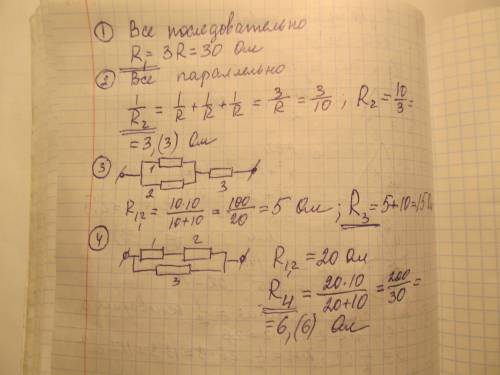 ① Все последовательно
R₁ = 3R = 30 Ом
② Все параллельно
1/R₂ = 1/R + 1/R + 1/R = 3/R = 3/10 ; R₂ = 10/3 =
= 3,(3) Ом
③ 1
2 3
R₁,₂ = 10·10/10+10 = 100/20 = 5 Ом ; R₃ = 5+10 = 15 Ом
④ 1 2
3
R₁,₂ = 20 Ом
R₄ = 20·10/20+10 = 200/30 =
= 6,(6) Ом